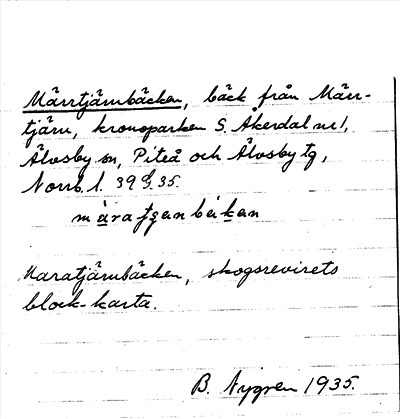 Märrtjärnbäcken, bäck från Märr-
tjärn, kronoparken S. Åkerdal nr 1,
Älvsby sn, Piteå och Älvsby tg,
Norrb. l. 39 35.
maratjärnbäcken
Maratjärnbäcken, skogsrevirets
block-karta.
B. Nygren 1935.